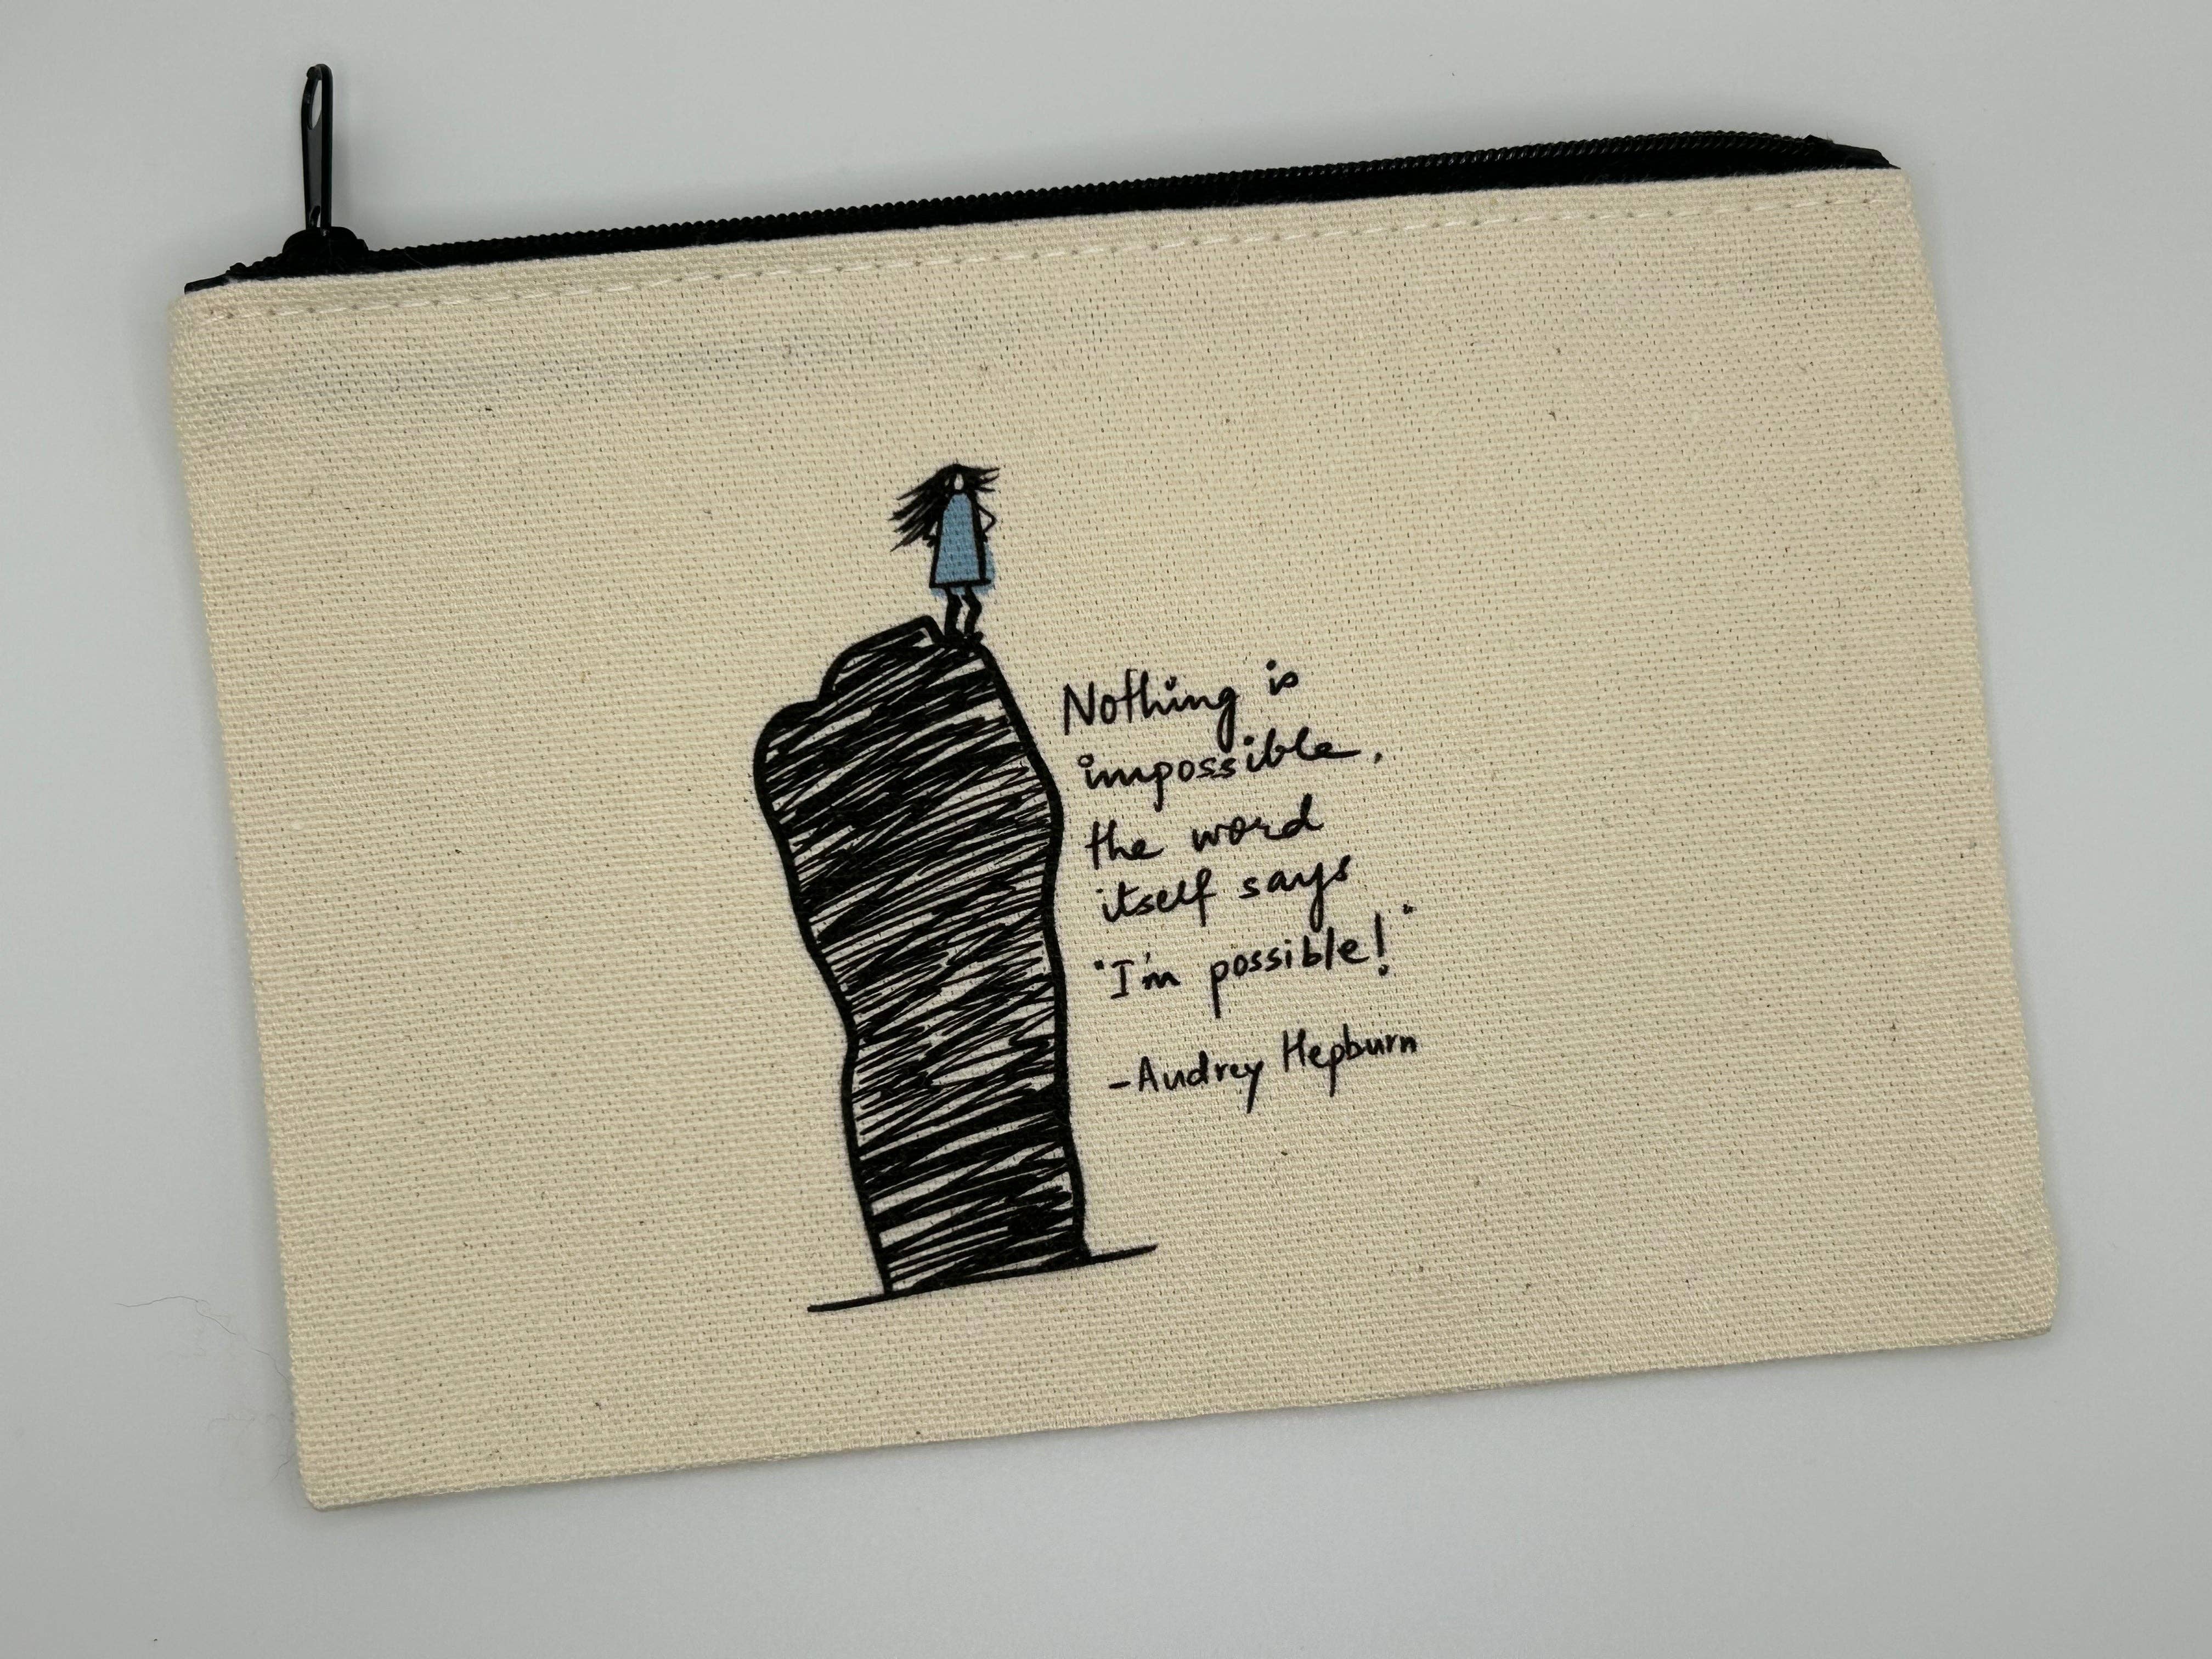 Nothing is
impossible,
the word
itself says
'I'm possible!'
-Audrey Hepburn